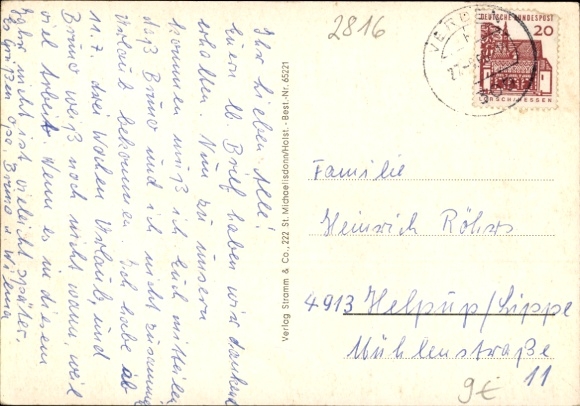 2816
Ihr lieben Alle!
Euern lb Brief haben wir dankend
erhalten. Nun zu unserm
kommen muß ich Euch mitteilen
daß Bruno und ich nicht zusammen
Urlaub bekommen. Ich habe ab
11.7. drei Wochen Urlaub, und
Bruno weiß noch nicht wann, weil
viel Arbeit. Wenn es in diesem
Jahr nicht ist vieleicht später.
Es grüßen Opa, Bruno u Wilma
Verlag Stramm & Co., 222 St. Michaelisdonn/Holst. - Best.-Nr. 65221
VERDEN
DEUTSCHE BUNDESPOST
20
LORSCH/HESSEN
Familie
Heinrich Röhrs
4913 Helpup/Lippe
Mühlenstraße
11
9€